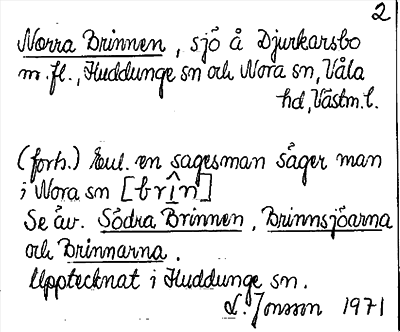 2
Norra Brinnen, sjö å Djurkarsbo
m.fl., Huddunge sn och Nora sn, Våla
hd, Västm. l.
(forh.) Enl. en sagesman säger man
i Nora sn [brîn]
Se äv. Södra Brinnen, Brinnsjöarna
och Brinnarna.
Upptecknat i Huddunge sn.
L. Jonsson 1971